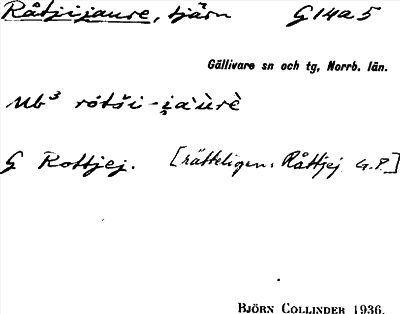 Råtjijaure, tjärn G14a5
Gällivare sn och tg, Norrb. län.
Mb³ rɷ́tši-i̯a̍ùrɛ̀
G Rottjej. [rätteligen: Råttjej G.P.]
BJÖRN COLLINDER 1936.